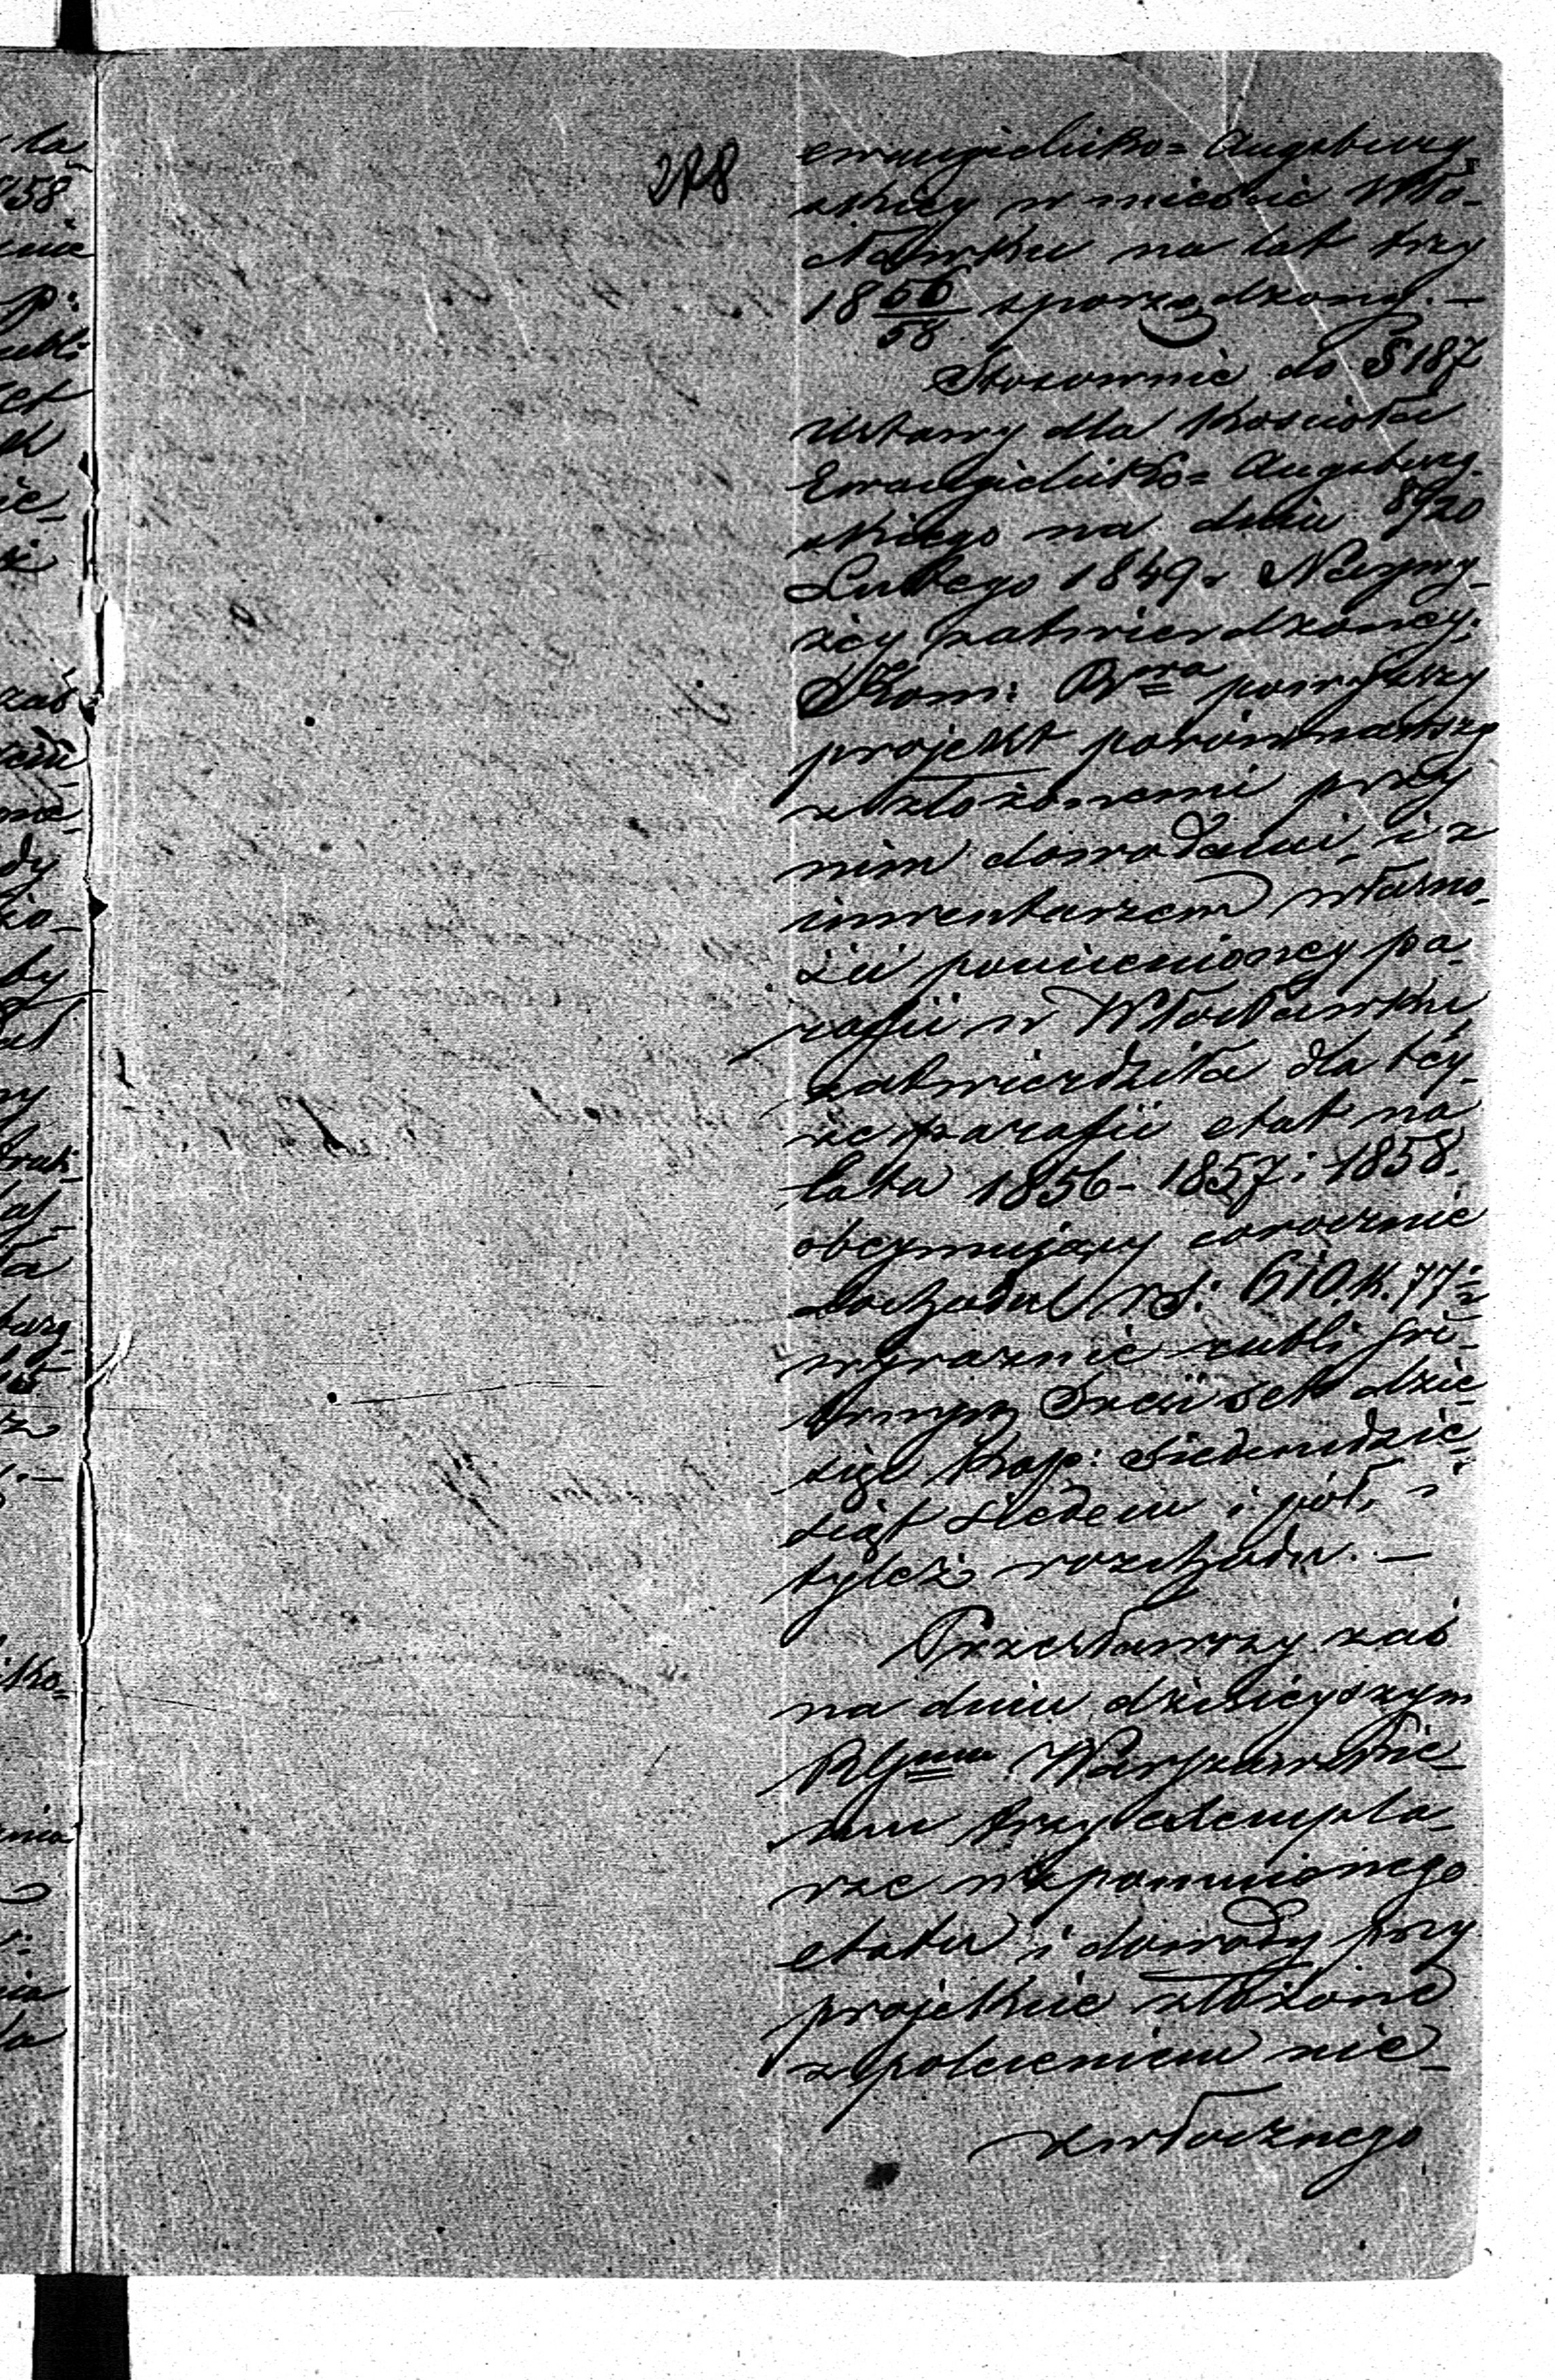 278
ewangielicko= Augsburg
skiey w mieście Wło-
cławku na lat trzy
18 56/58 sporządzony. —
Stosownie do § 187
Ustawy dla Kościoła
Ewangielicko= Augsburg-
skiego na dniu 8/20
Lutego 1849 r Naywy-
żey zatwierdzoney;
Kom: Rra powyższy
projekt porównawszy
z złożonemi przy
nim dowodami, i z
inwentarzem własno-
ści pomienioney pa-
rafii w Włocławku
zatwierdziła dla tey-
że parafii etat na
lata 1856 - 1857 i 1858.
obeymujący corocznie
dochodu rs: 610. k. 77½
wyraznie rubli sre-
brnych Sześćset dzie-
sięć kop: siedmdzie-
siąt siedem i pół, i
tyleż rozchodu. —
Przesławszy zaś
na dniu dzisieyszym
Warszawskie-
mu trzy exempla-
rze wspomnionego
etatu i dowody przy
projekcie złożone
z poleceniem nie-
zwłocznego